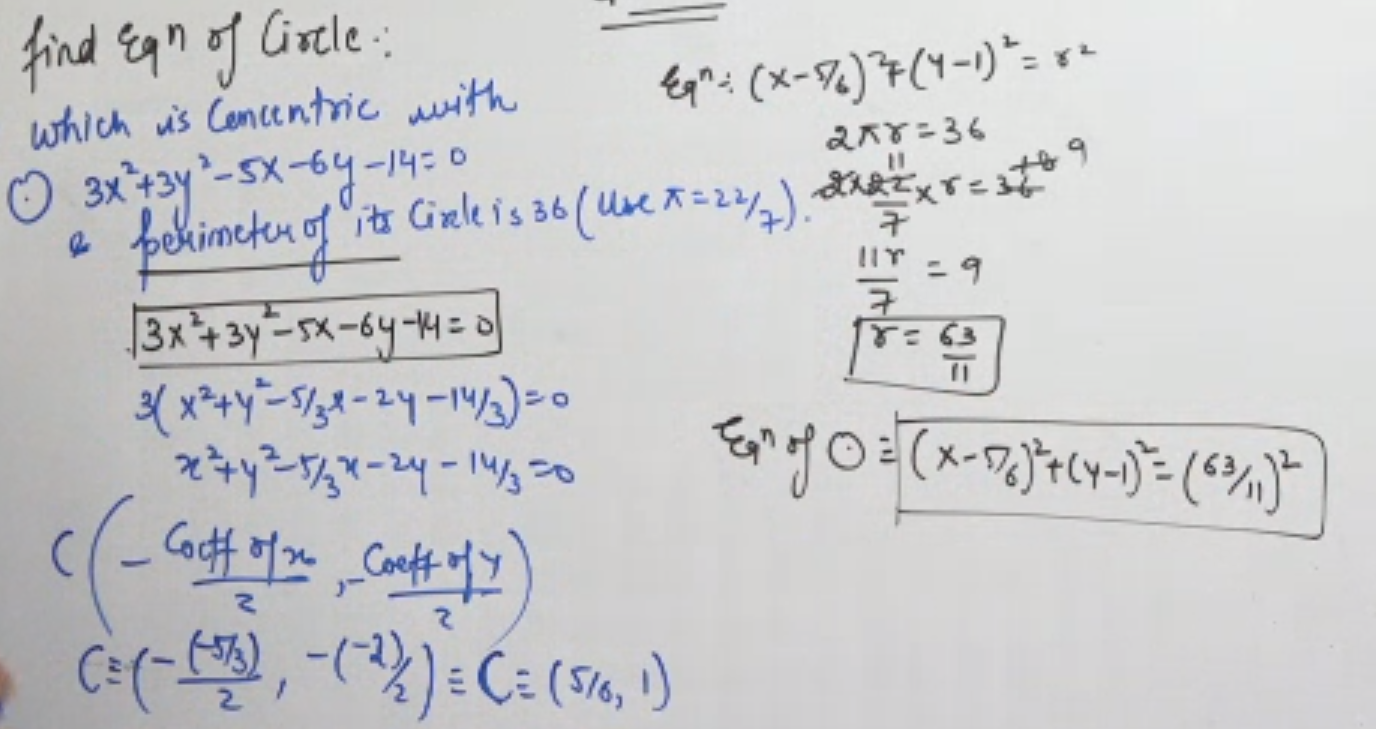 find Eqn of Circle:
which is Concentric with
① 3x²+3y²-5x-6y-14=0
& perimeter of its Circle is 36 (Use π=22/7).
3x²+3y²-5x-6y-14=0
3(x²+y²-5/3x-2y-14/3)=0
x²+y²-5/3x-2y-14/3=0
C(-Coeff of x/2, -Coeff of y/2)
C≡(-(-5/3)/2, -(-2)/2) ≡ C≡(5/6, 1)
Eqn: (x-5/6)²+(y-1)²=r²
2πr=36
2x22/7 x r = 36 18 9
11
11r/7 = 9
r = 63/11
Eqn of ○ ≡ (x-5/6)²+(y-1)²=(63/11)²